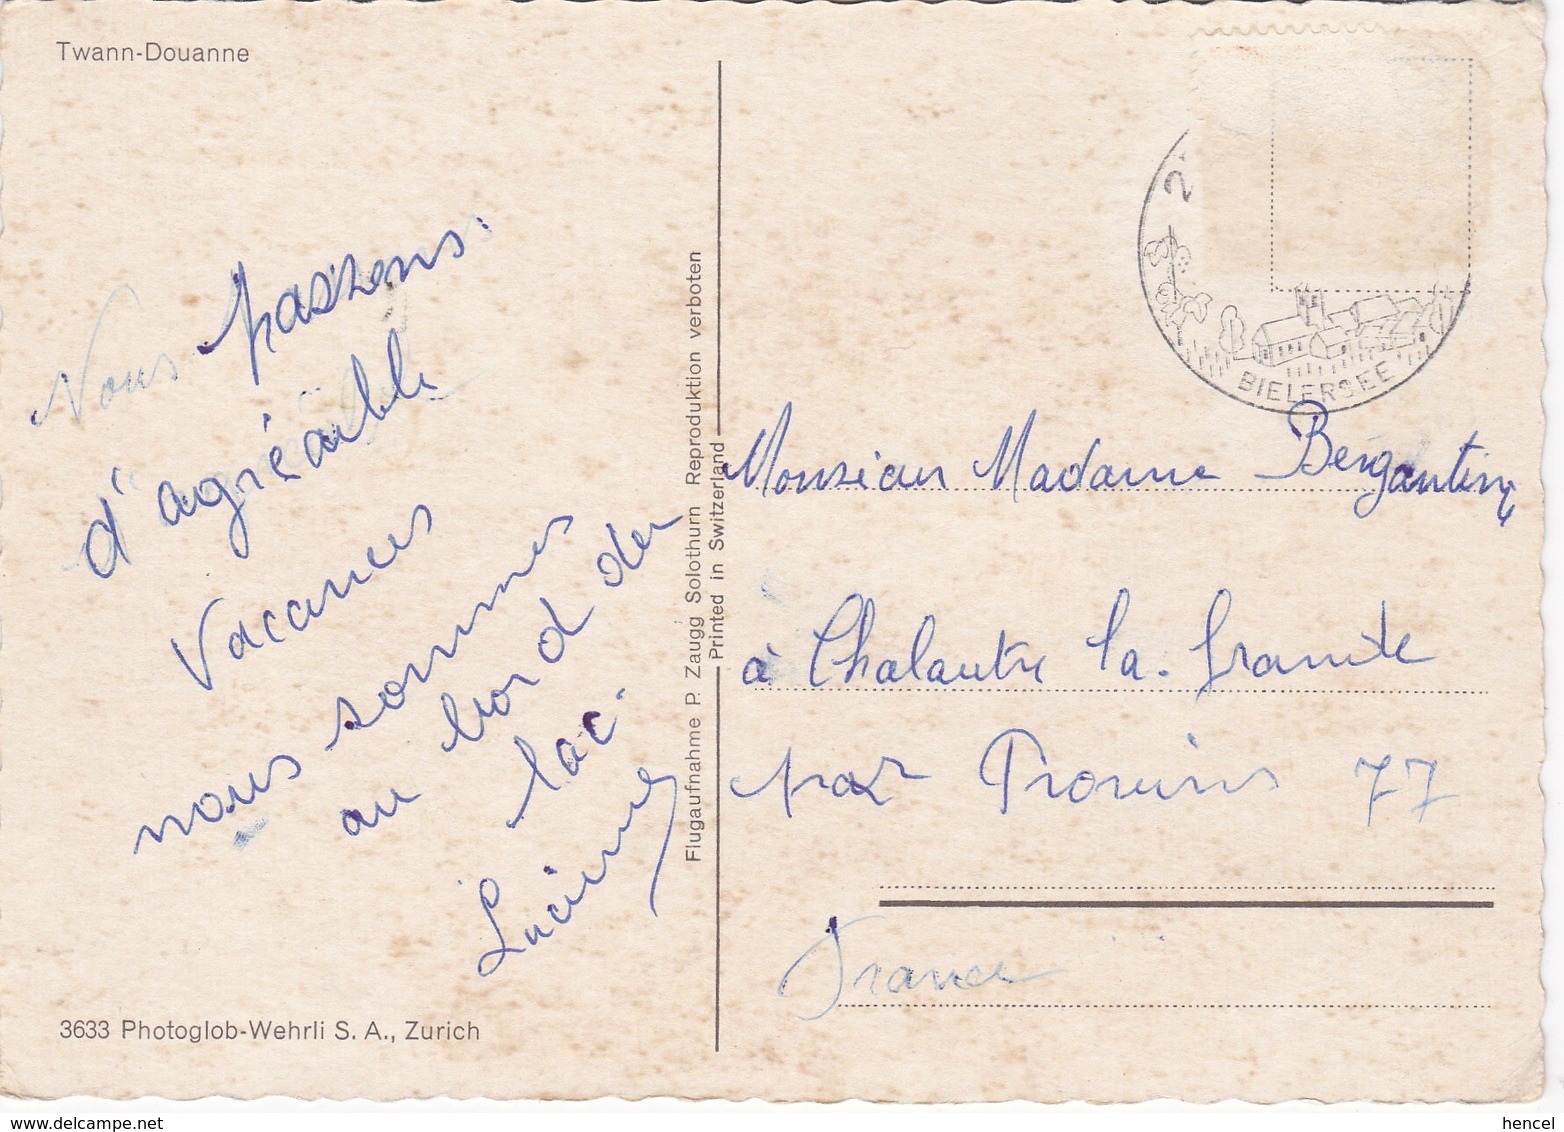 Twann-Douanne
Nous passons
d'agréable
vacances
nous sommes
au bord du
lac.
Lucienne
3633 Photoglob-Wehrli S. A., Zurich
Flugaufnahme P. Zaugg Solothurn Reproduktion verboten
Printed in Switzerland
2
BIELERSEE
Monsieur Madame
à Chalautre la. Grande
par Provins 77
France
www.delcampe.net
hencel